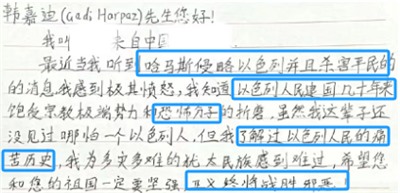 韩嘉迪(Gadi Harpaz)先生您好!
我叫 来自中国
最近当我听到哈马斯侵略以色列并且杀害平民的
的消息,我感到极其愤怒,我知道以色列人民建国几十年来
饱受宗教极端势力和恐怖分子的折磨,虽然我这辈子还
没见过哪怕一个以色列人,但我了解过以色列人民的痛
苦历史,我为多灾多难的犹太民族感到难过,希望您
和您的祖国一定要坚强,正义终将战胜邪恶!